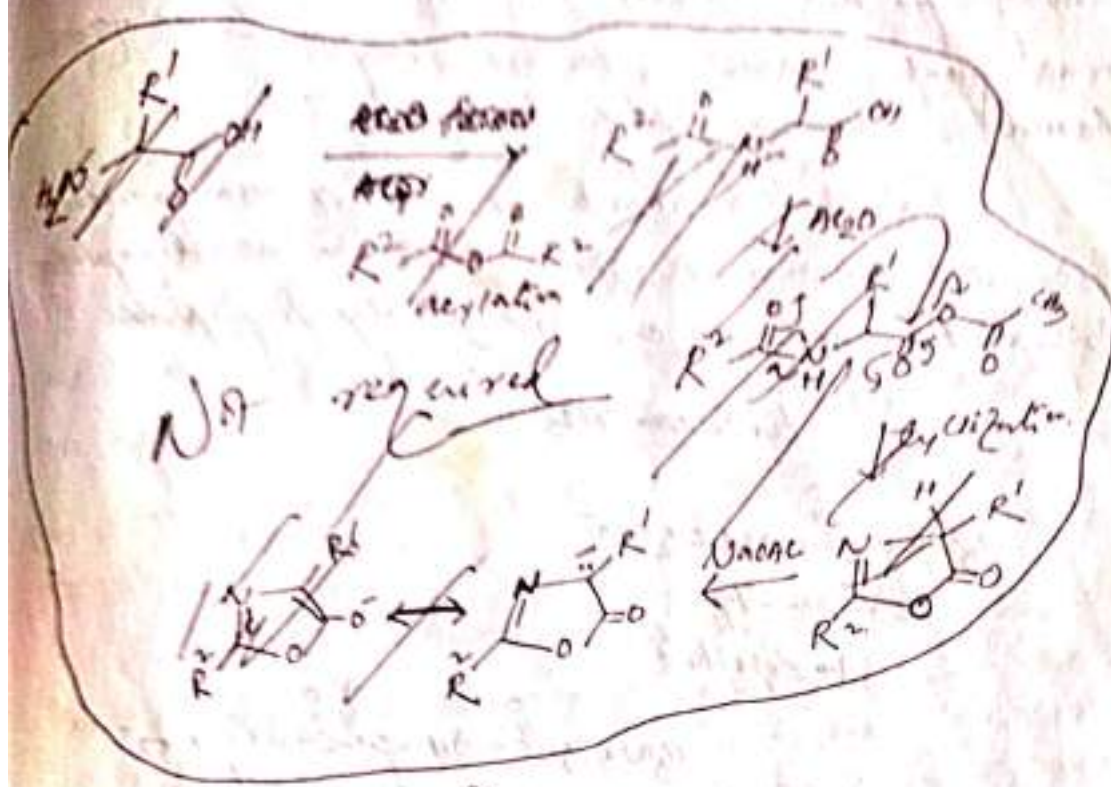 R'
H2N
OH
O
R2 O O O R2
acylation
R2 O N H R' O OH
Ac2O
R2 O N H R' O O O CH3
Not required
cyclization
N H R' O O R2
NaOAc
N R' O O R2
N R' O- O R2